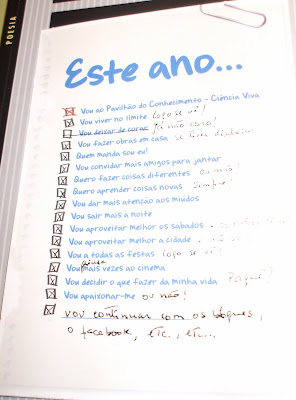 POESIA
Este ano...
Vou ao Pavilhão do Conhecimento - Ciência Viva
Vou viver no limite logo se vê!
Vou deixar de corar já não coro!
Vou fazer obras em casa se houver dinheiro
Quem manda sou eu!
Vou convidar mais amigos para jantar
Quero fazer coisas diferentes ou não!
Quero aprender coisas novas Sempre!
Vou dar mais atenção aos miúdos
Vou sair mais à noite
Vou aproveitar melhor os sábados
Vou aproveitar melhor a cidade
Vou a todas as festas logo se vê!
Vou ainda mais vezes ao cinema
Vou decidir o que fazer da minha vida
Vou apaixonar-me ou não!
vou continuar com os blogues,
o facebook, etc., etc...